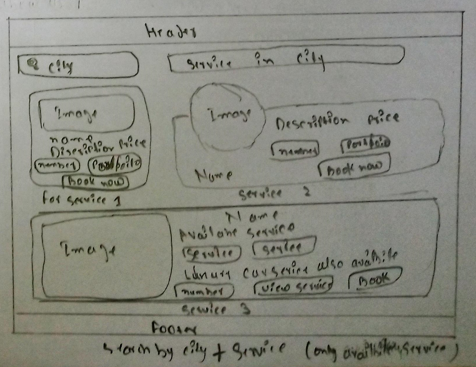 Header
City
Service in City
Image
name
Discription Price
number Portfolio
Book now
for service 1
Image
Description Price
number Portfolio
Book now
Name
Service 2
Image
Name
Available service
service service
Luxury car service also available
number view service Book
service 3
Footer
search by city + service (only available service)